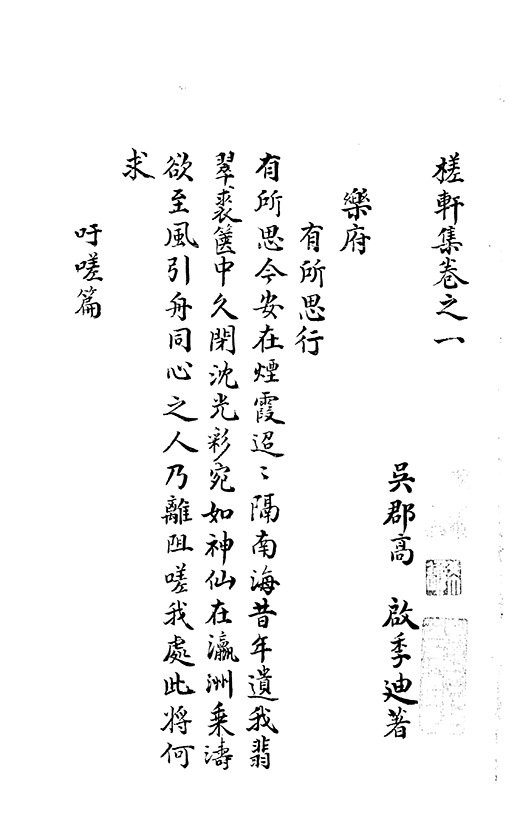 槎軒集卷之一
吳郡高　啟季迪著
樂府
有所思行
有所思今安在煙霞迢〻隔南海昔年遺我翡
翠裘篋中久閉沈光彩宛如神仙在瀛洲乗濤
欲至風引舟同心之人乃離阻嗟我處此将何
求
吁嗟篇